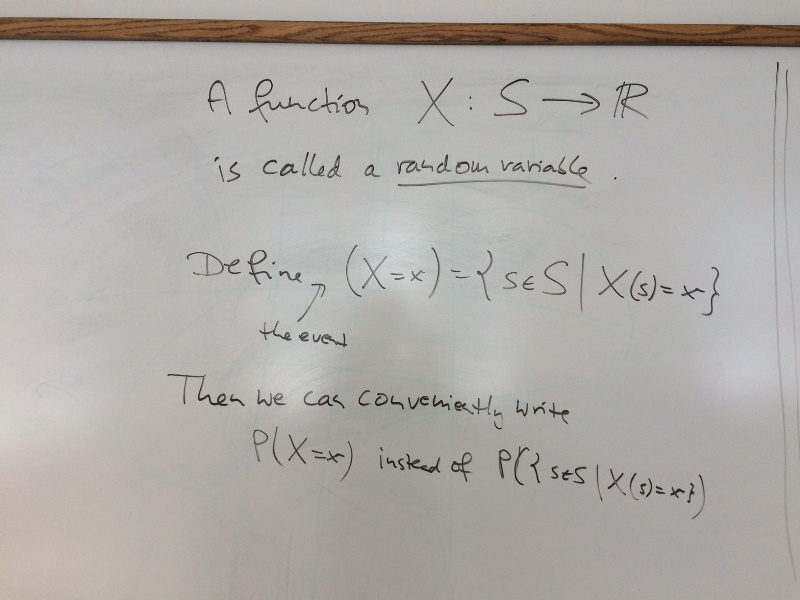 A function X : S → ℝ
is called a random variable .
Define (X=x) = { s∈S | X(s)=x}
the event
Then we can conveniently write
P(X=x) instead of P({ s∈S | X(s)=x})